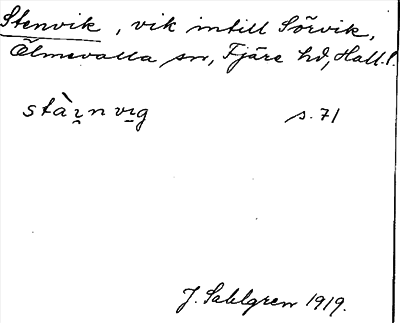 Stenvik, vik intill Sörvik,
Ölmevalla sn, Fjäre hd, Hall. l.
stàı̯n vı̱g s. 71
J. Sahlgren 1919.